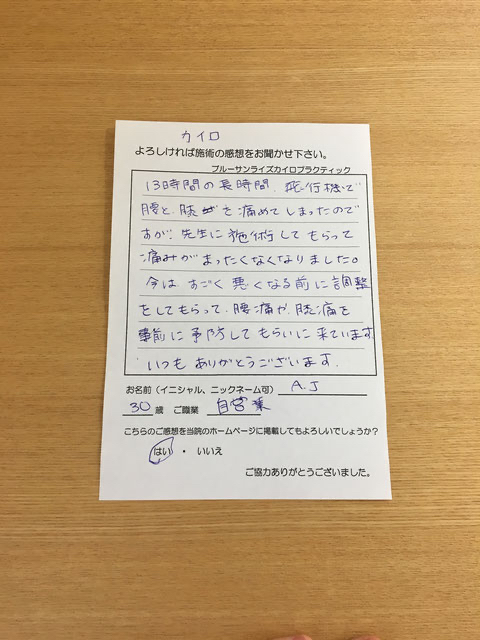 カイロ
よろしければ施術の感想をお聞かせ下さい。
ブルーサンライズカイロプラクティック
13時間の長時間、飛行機で
腰と、膝を痛めてしまったので
すが、先生に施術してもらって
痛みがまったくなくなりました。
今は、すごく悪くなる前に調整
をしてもらって、腰痛や、膝痛を
事前に予防してもらいに来ています。
いつもありがとうございます。
お名前（イニシャル、ニックネーム可） A.J
30 歳 ご職業 自営業
こちらのご感想を当院のホームページに掲載してもよろしいでしょうか？
はい ・ いいえ
ご協力ありがとうございました。